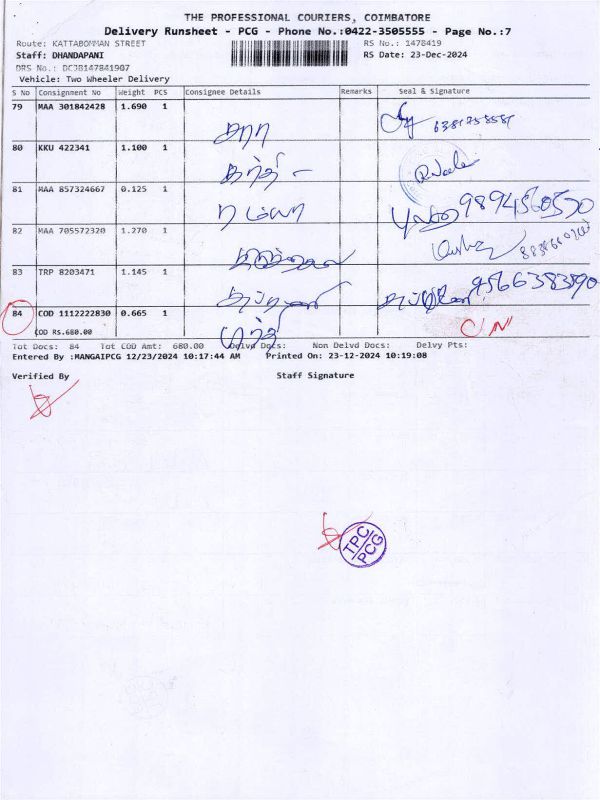 THE PROFESSIONAL COURIERS, COIMBATORE
Delivery Runsheet - PCG - Phone No.:0422-3505555 - Page No.:7
Route: KATTABOMMAN STREET RS No.: 1478419
Staff: DHANDAPANI RS Date: 23-Dec-2024
DRS No.: DC3B147841907
Vehicle: Two Wheeler Delivery
S No Consignment No Weight PCS Consignee Details Remarks Seal & Signature
79 MAA 301842428 1.690 1
80 KKU 422341 1.100 1 கார்தி
81 MAA 857324667 0.125 1 ரம்யா
82 MAA 705572320 1.270 1
83 TRP 8203471 1.145 1 9566383890
84 COD 1112222830 0.665 1
COD Rs.680.00
Tot Docs: 84 Tot COD Amt: 680.00 Delvd Docs: Non Delvd Docs: Delvy Pts:
Entered By :MANGAIPCG 12/23/2024 10:17:44 AM Printed On: 23-12-2024 10:19:08
Verified By Staff Signature
TPC
PCG